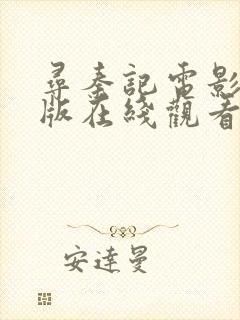 尋秦記電影
版在綫觀看
安達曼